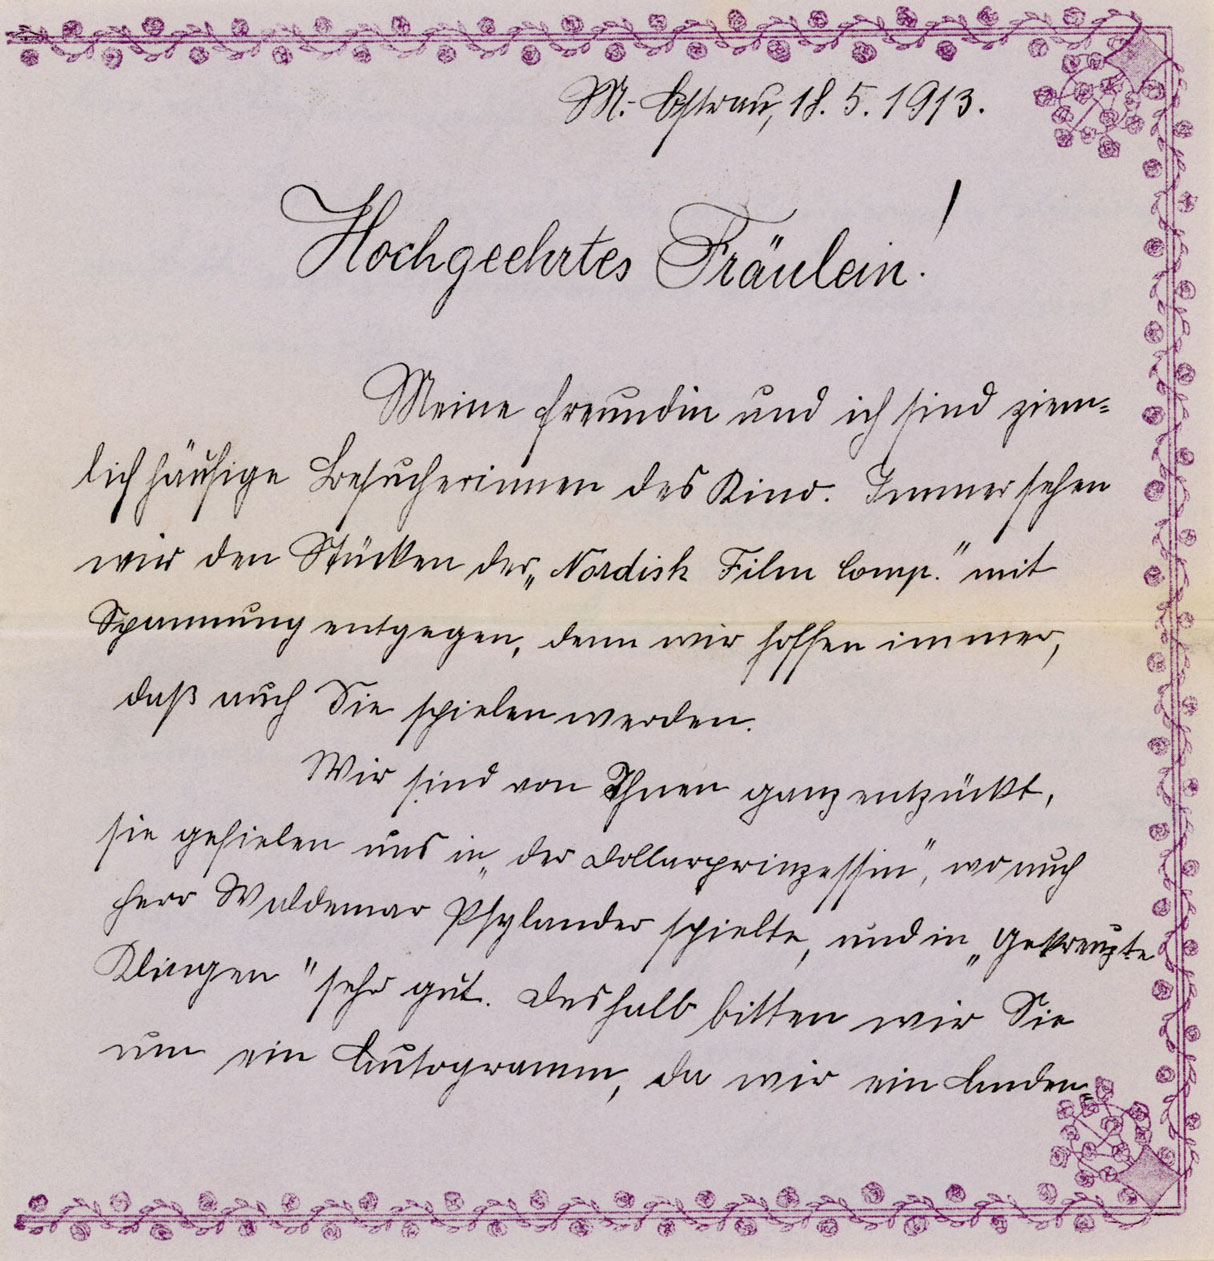 M.-Ostrau, 18. 5. 1913.
Hochgeehrtes Fräulein!
Meine Freundin und ich sind ziem-
lich häufige Besucherinnen des Kino. Immer sehen
wir den Stücken der „Nordisk Film Comp.“ mit
Spannung entgegen, denn wir hoffen immer,
daß auch Sie spielen werden.
Wir sind von Ihnen ganz entzückt,
sie gefielen uns in „der Dollarprinzessin“, wo auch
Herr Waldemar Psylander spielte, und in „Gekreuzte
Klingen“ sehr gut. Deshalb bitten wir Sie
um ein Autogramm, da wir ein Anden-